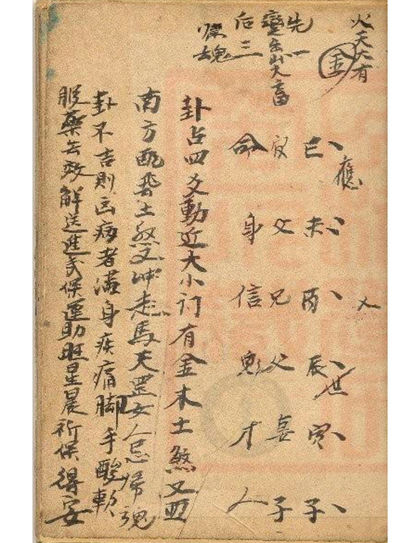 火天大有
金
應 世
巳未酉辰寅子
官父兄父妻子
命身信鬼才人
先
變出山大畜
后三
歸魂
卦占四爻動近大小订有金木土煞又四
南方 土煞 冲走馬天罡女人忌歸魂
卦不吉則凶病者满身疾痛脚手酸軟
服藥無效解送 保運助旺星晨祈保得安